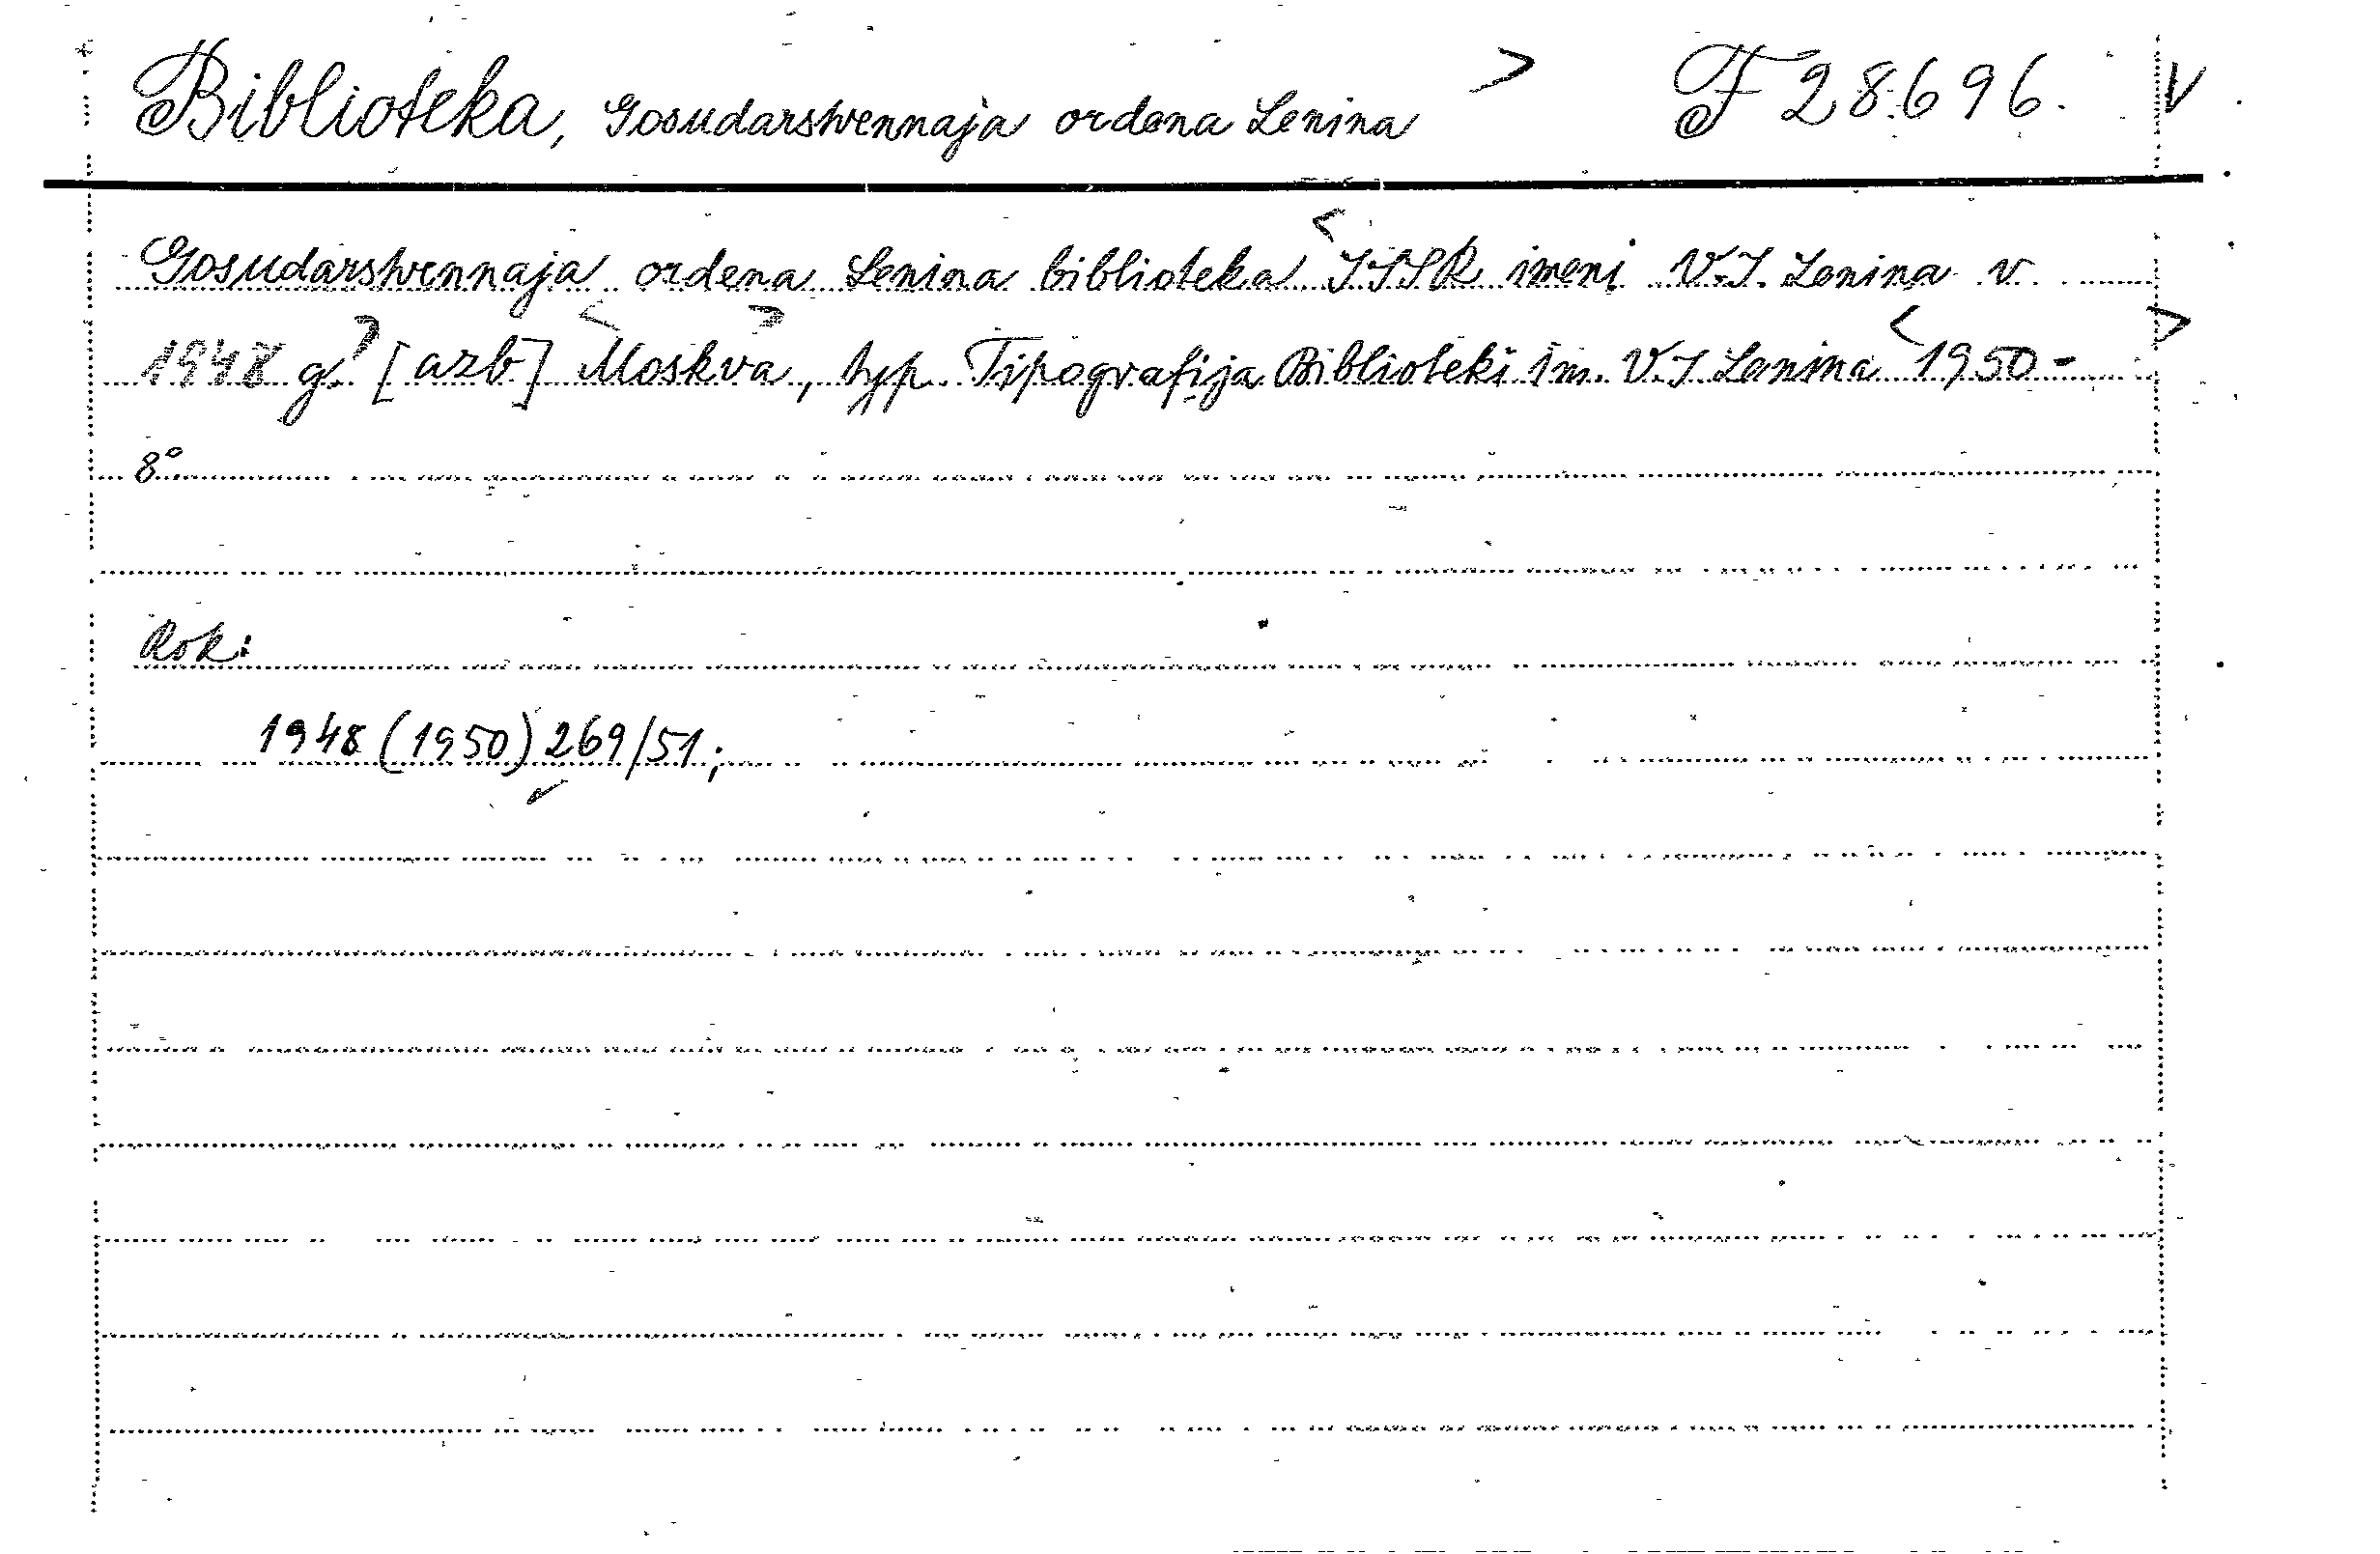 Biblioteka, Gosudarstvennaja ordena Lenina > F 28.696. V
Gosudarstvennaja ordena Lenina biblioteka < SSSR imeni V.I. Lenina v
1948 g.> [azb] < Moskva >, typ. Tipografija Biblioteki im. V.I Lenina < 1950- >
8°
Rok:
1948 (1950) 269/51;